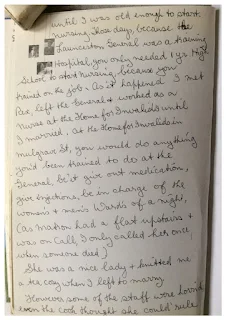 until I was old enough to start
nursing. Those days, because the
Launceston General was a training
Hospital, you only needed 1 yrs High
School to start nursing, because you
trained on the job. As it happened I met
left the General & worked as a
Nurse at the Home for Invalids until
I married. At the Home for Invalids in
Mulgrave St, you would do anything
you'd been trained to do at the
General, be it give out medication,
give injections, be in charge of the
womens & men's Wards of a night,
(as matron had a flat upstairs &
was on call, I only called her once
when someone died)
She was a nice lady & knitted me
a tea cosy when I left to marry.
However some of the staff were
even the cook thought she could rule